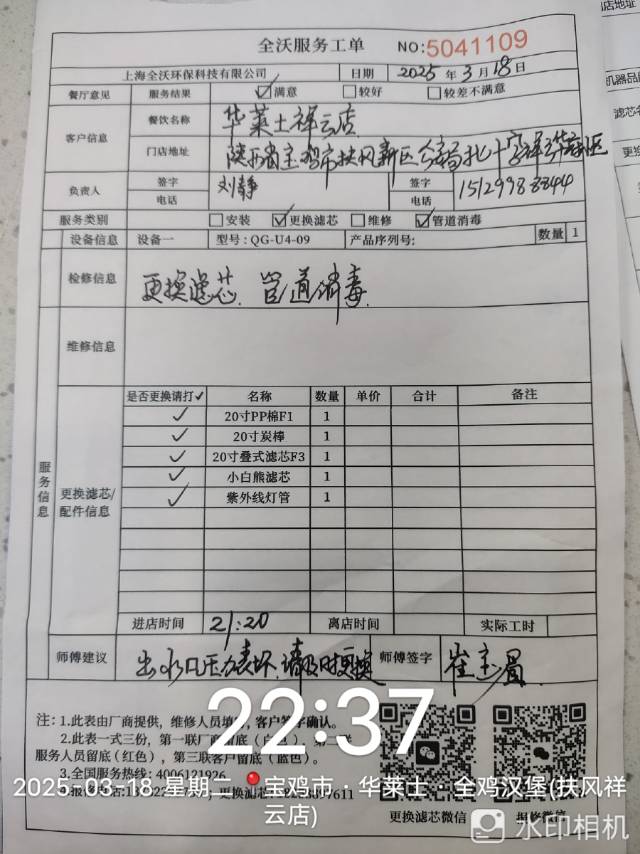 全沃服务工单 NO:5041109
上海全沃环保科技有限公司 日期 2025 年 3 月 18 日
餐厅意见 服务结果 ☑满意 □较好 □较差不满意
客户信息 餐饮名称 华莱士祥云店
门店地址 陕西省宝鸡市扶风新区
负责人 签字 电话 刘静 签字 电话
服务类别 □安装 ☑更换滤芯 □维修 ☑管道消毒
设备信息 设备一 型号:QG-U4-09 产品序列号: 数量 1
检修信息 更换滤芯. 管道消毒.
维修信息
服务信息
更换滤芯/配件信息
是否更换请打✓ 名称 数量 单价 合计 备注
✓ 20寸PP棉F1 1
✓ 20寸炭棒 1
✓ 20寸叠式滤芯F3 1
✓ 小白熊滤芯 1
✓ 紫外线灯管 1
进店时间 21:20 离店时间 实际工时
师傅建议 出水口压力表坏.请及时更换 师傅签字
注: 1.此表由厂商提供，维修人员填 客户签字确认。
2.此表一式三份，第一联厂商留底
服务人员留底(红色)，第三联客户留底(蓝色)。
3.全国服务热线: 4006121926
更换滤芯微信 报修微信
22:37
2025-03-18 星期二 宝鸡市·华莱士·全鸡汉堡(扶风祥
云店)
水印相机